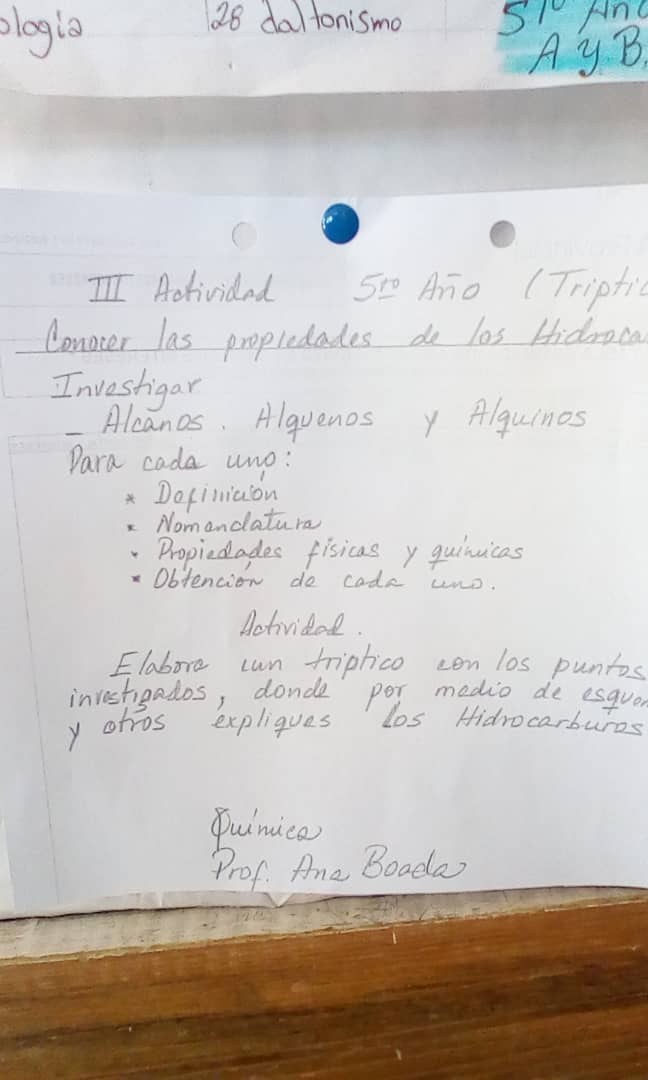 ología 28 daltonismo 5to Añ
A y B.
III Actividad 5to Año (Tríptic
Conocer las propiedades de los Hidroca
Investigar
_ Alcanos. Alquenos y Alquinos
Para cada uno:
* Definición
* Nomenclatura
* Propiedades físicas y químicas
* Obtención de cada uno.
Actividad.
Elabora un tríptico con los puntos
investigados, donde por medio de esque
y otros expliques los Hidrocarburos
Química
Prof. Ana Boada